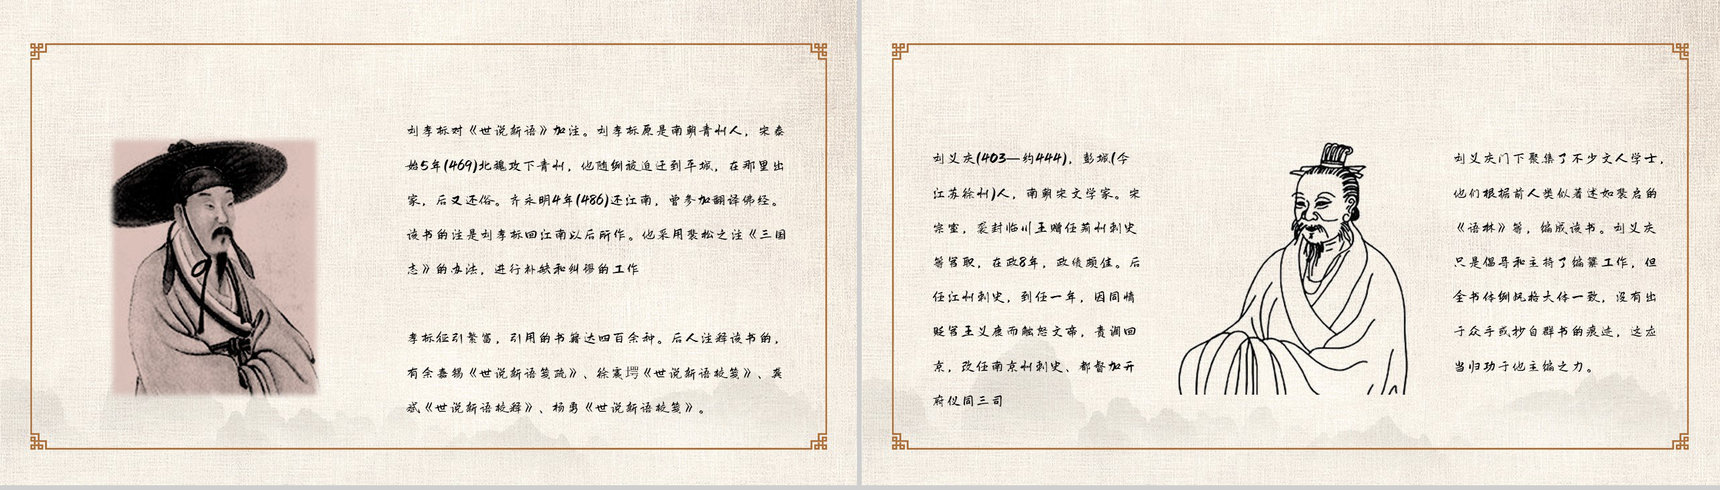 刘孝标对《世说新语》加注。刘孝标原是南朝青州人，宋泰
始5年(469)北魏攻下青州，他随例被迫迁到平城，在那里出
家，后又还俗。齐永明4年(486)还江南，曾参加翻译佛经。
该书的注是刘孝标回江南以后所作。他采用裴松之注《三国
志》的办法，进行补缺和纠谬的工作
孝标征引繁富，引用的书籍达四百余种。后人注释该书的，
有余嘉锡《世说新语笺疏》、徐震堮《世说新语校笺》、龚
斌《世说新语校释》、杨勇《世说新语校笺》。
刘义庆(403—约444)，彭城(今
江苏徐州)人，南朝宋文学家。宋
宗室，袭封临川王赠任荆州刺史
等官职，在政8年，政绩颇佳。后
任江州刺史，到任一年，因同情
贬官王义康而触怒文帝，责调回
京，改任南京州刺史、都督加开
府仪同三司
刘义庆门下聚集了不少文人学士，
他们根据前人类似著述如裴启的
《语林》等，编成该书。刘义庆
只是倡导和主持了编纂工作，但
全书体例风格大体一致，没有出
于众手或抄自群书的痕迹，这应
当归功于他主编之力。